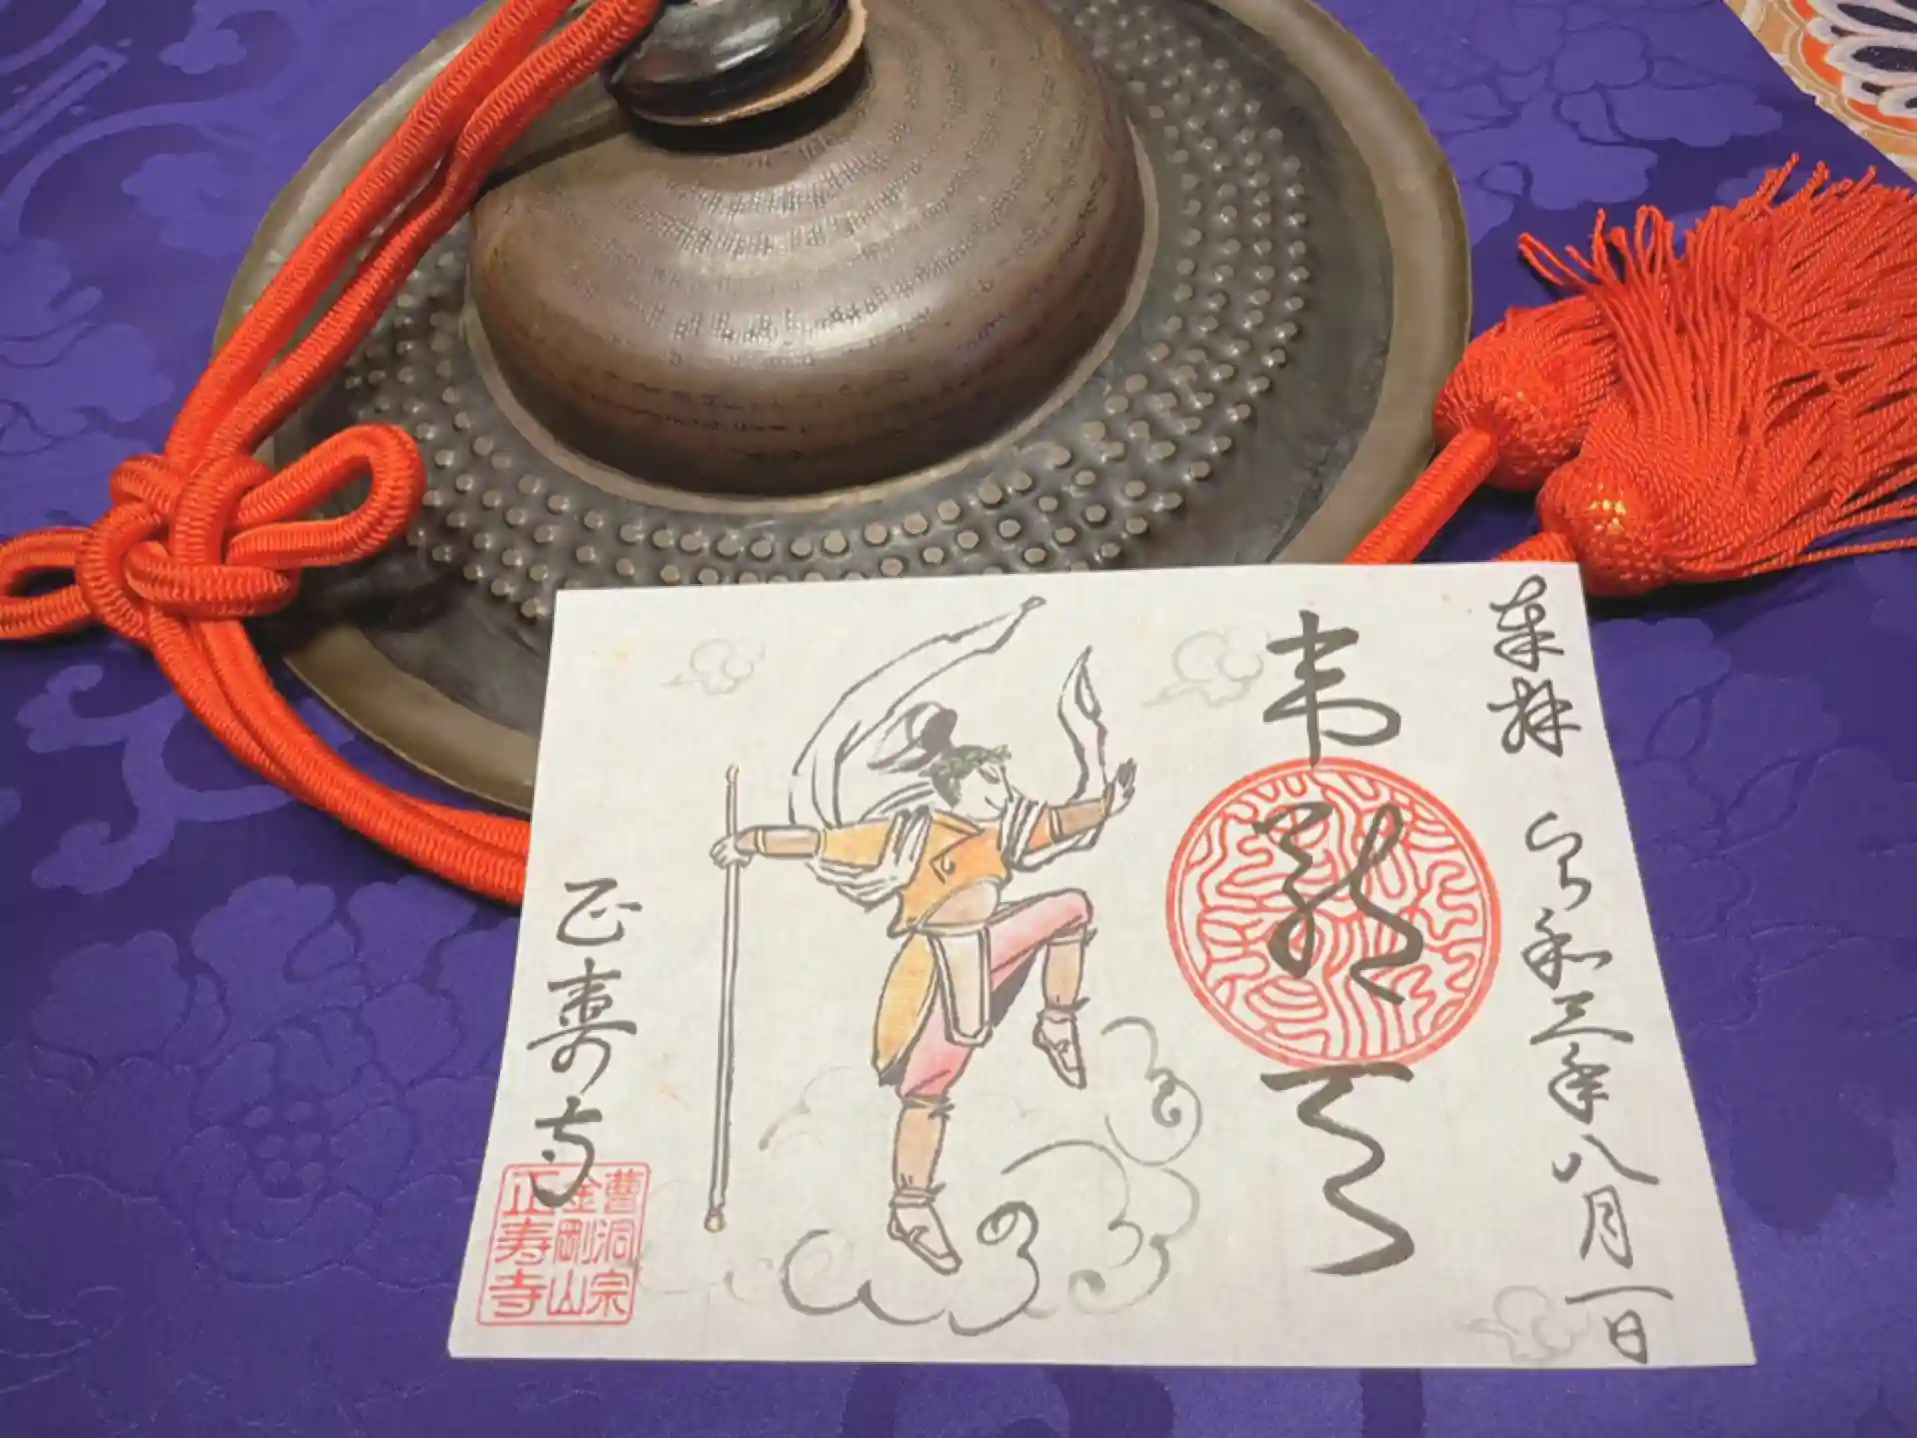 奉拝
令和三年八月一日
韋駄天
正寿寺
曹洞宗
金剛山
正寿寺